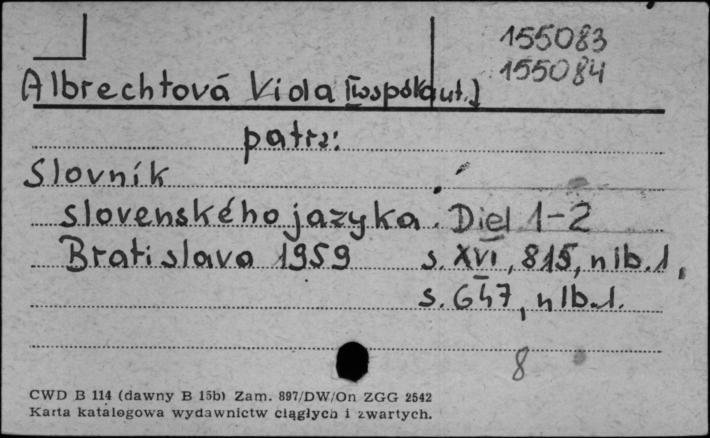 155083
155084
Albrechtová Viola [współaut.]
patrz:
Slovník
slovenského jazyka. Diel 1-2
Bratislava 1959 s. XVI, 815, nlb. 1,
s. 647, nlb. 1.
8
CWD B 114 (dawny B 15b) Zam. 897/DW/On ZGG 2542
Karta katalogowa wydawnictw ciągłych i zwartych.